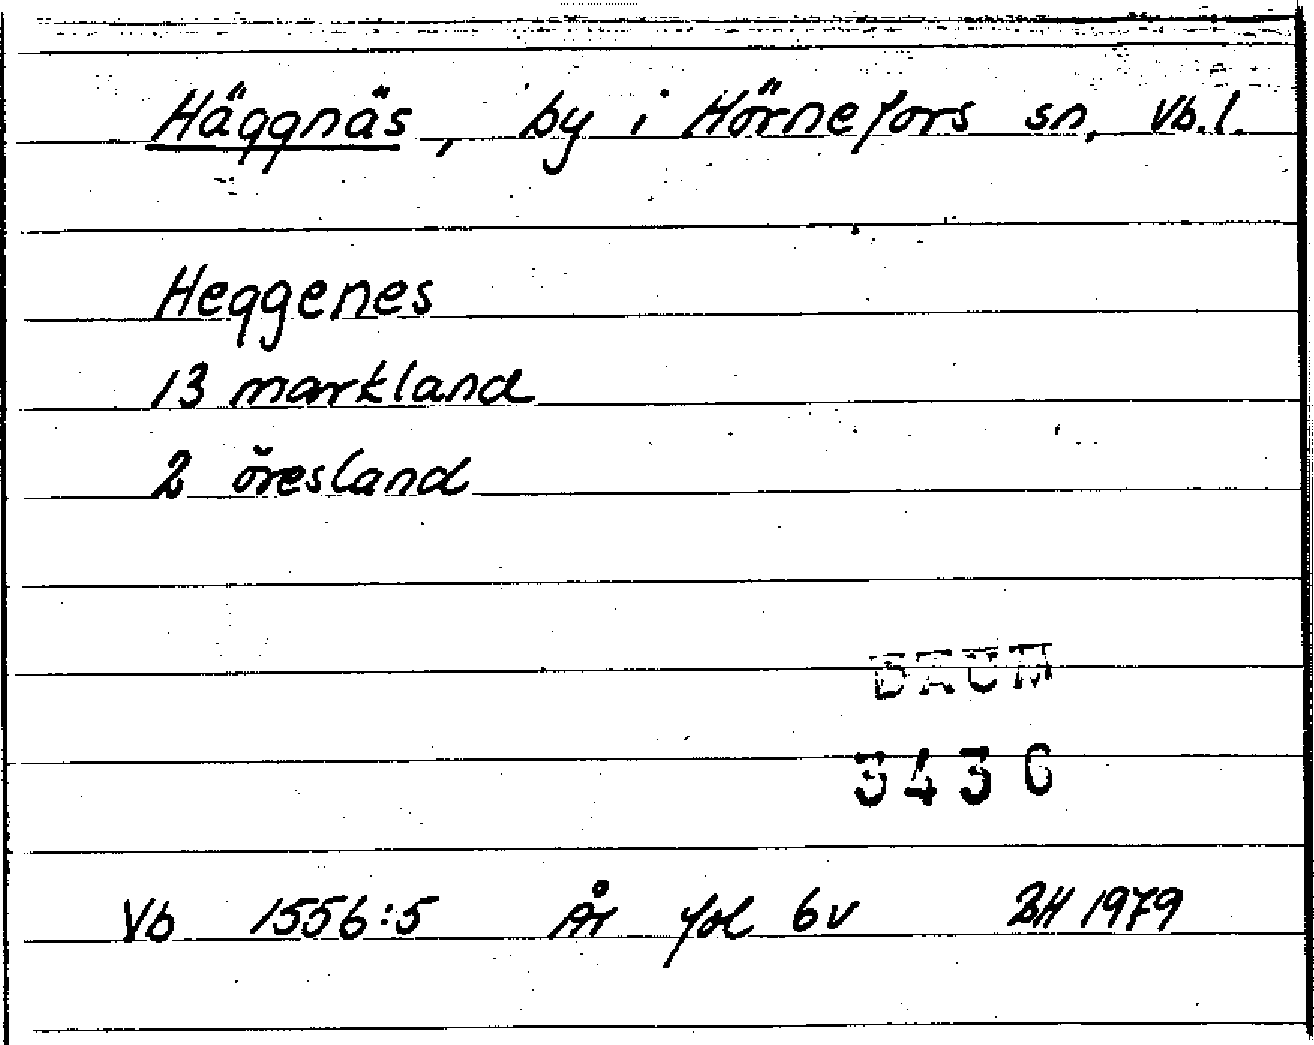 Häggnäs, by i Hörnefors sn, Vb.l.
Heggenes
13 markland
2 öresland
DAUM
3436
Vb 1556:5 År fol 6v BH 1979